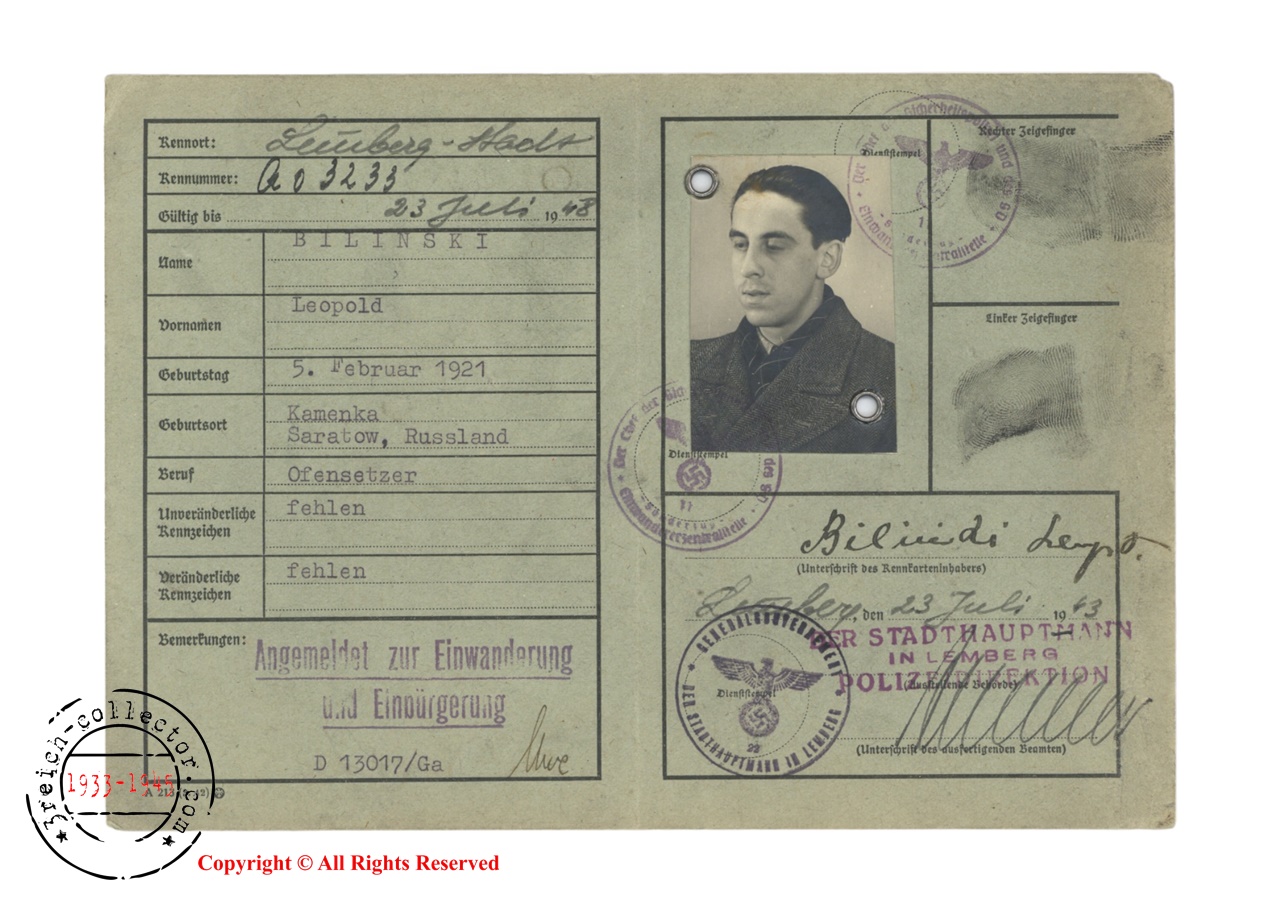 Kennort: Lemberg-Stadt
Kennummer: A 03233
Gültig bis 23 Juli 1948
Name
BILINSKI
Vornamen
Leopold
Geburtstag
5. Februar 1921
Geburtsort
Kamenka
Saratow, Russland
Beruf
Ofensetzer
Unveränderliche
Kennzeichen
fehlen
Veränderliche
Kennzeichen
fehlen
Bemerkungen:
Angemeldet zur Einwanderung
und Einbürgerung
D 13017/Ga
A 213
Dienststempel
Der Chef der Sicherheitspolizei und des SD
Einwandererzentralstelle
Rechter Zeigefinger
Linker Zeigefinger
Dienststempel
Der Chef der
des SD
Einwandererzentralstelle
17
(Unterschrift des Kennkarteninhabers)
Lemberg, den 23 Juli 1943
DER STADTHAUPTMANN
IN LEMBERG
POLIZEIDIREKTION
(Ausstellende Behörde)
GENERALGOUVERNEMENT
DER STADTHAUPTMANN IN LEMBERG
Dienststempel
22
(Unterschrift des ausfertigenden Beamten)
3reich-collector.com
1933-1945
Copyright © All Rights Reserved